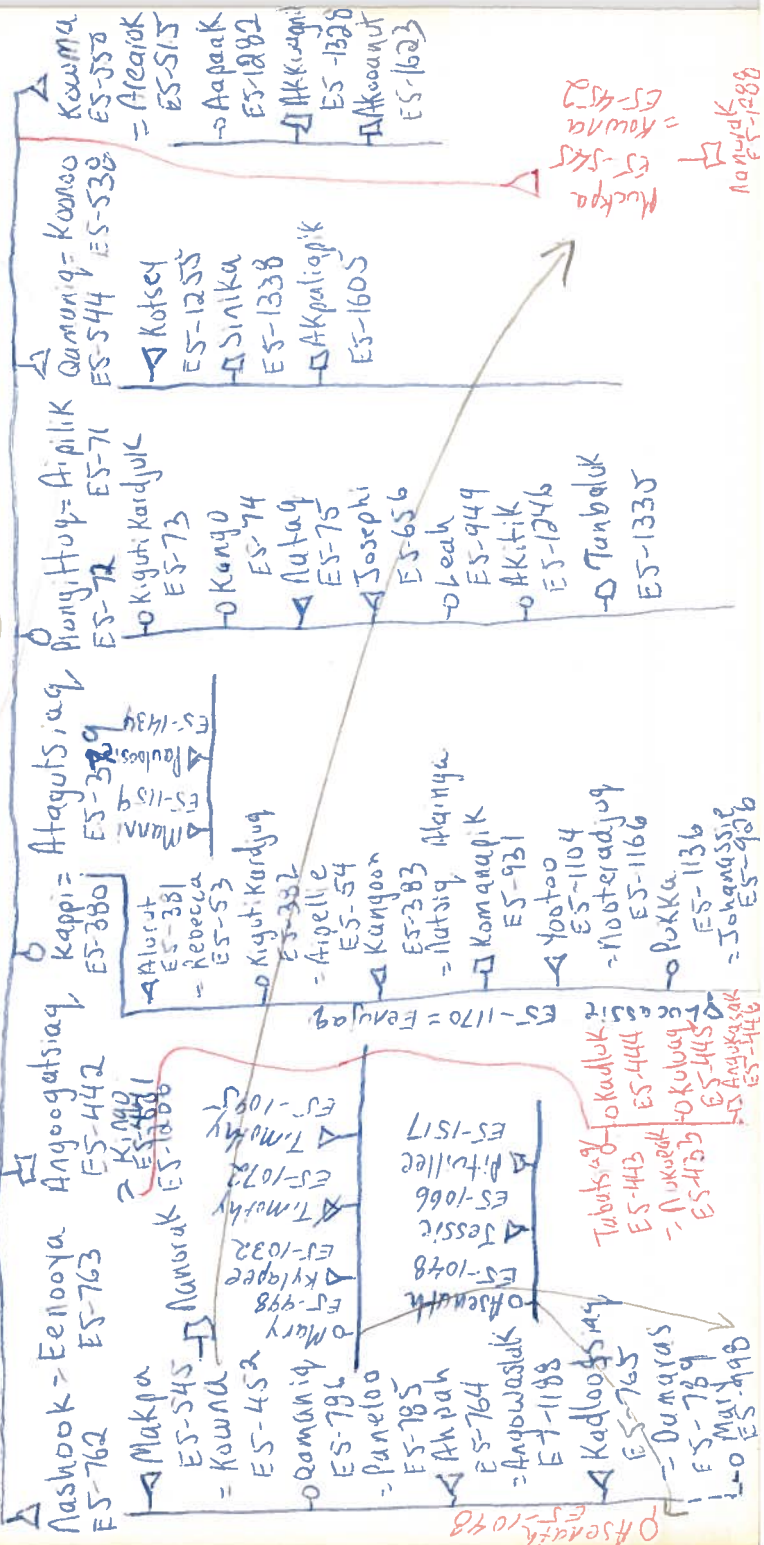 Nashook = Eenooya
E5-762 E5-763
Makpa
E5-545
= Kowna
E5-452
Nanorak
Qamaniq
E5-796
= Paneloo
E5-785
Ahpah
E5-764
= Angowasluk
E7-1188
Kadloogsiaq
E5-765
= Damaras
E5-789
Mary
E5-998
Asenath
E5-1048
Mary
E5-998
Kylapee
E5-1032
Timothy
E5-1072
Timothy
Asenath
E5-1048
Jessie
E5-1066
Pitullee
E5-1517
Angoogatsiaq
E5-442
= Kingo
E5-1206
Tabatsiaq
E5-443
= Nukueak
E5-433
Kadluk
E5-444
Kuluaq
E5-445
Angukasak
E5-446
Kappi = Atagutsiaq
E5-380 E5-379
Alurut
E5-381
= Rebecca
E5-53
Kigutikardjuq
E5-382
= Aipellie
E5-54
Kangoon
E5-383
= Natsiq Alainga
Komanapik
E5-931
Yootoo
E5-1104
= Nooteradjuq
E5-1166
Pukka
E5-1136
= Johanassie
E5-926
Lucassie E5-1170 = Eenujaq
Manni
E5-1159
Pauloosi
E5-1434
Piungittuq = Aipilik
E5-72 E5-71
Kigutikardjuk
E5-73
Kango
E5-74
Natuq
E5-75
Josephi
E5-656
Leah
E5-949
Akitik
E5-1246
Tunbaluk
E5-1335
Qamaniq = Koonoo
E5-544 E5-538
Kotsey
E5-1255
Sinika
E5-1338
Akpaliapik
E5-1605
Kowma
E5-550
= Arearok
E5-515
Aapaak
E5-1282
Akkiumgni
E5-1328
Akooanut
E5-1623
Muckpa
E5-545
= Kowna
E5-452
Nanurak
E5-1288